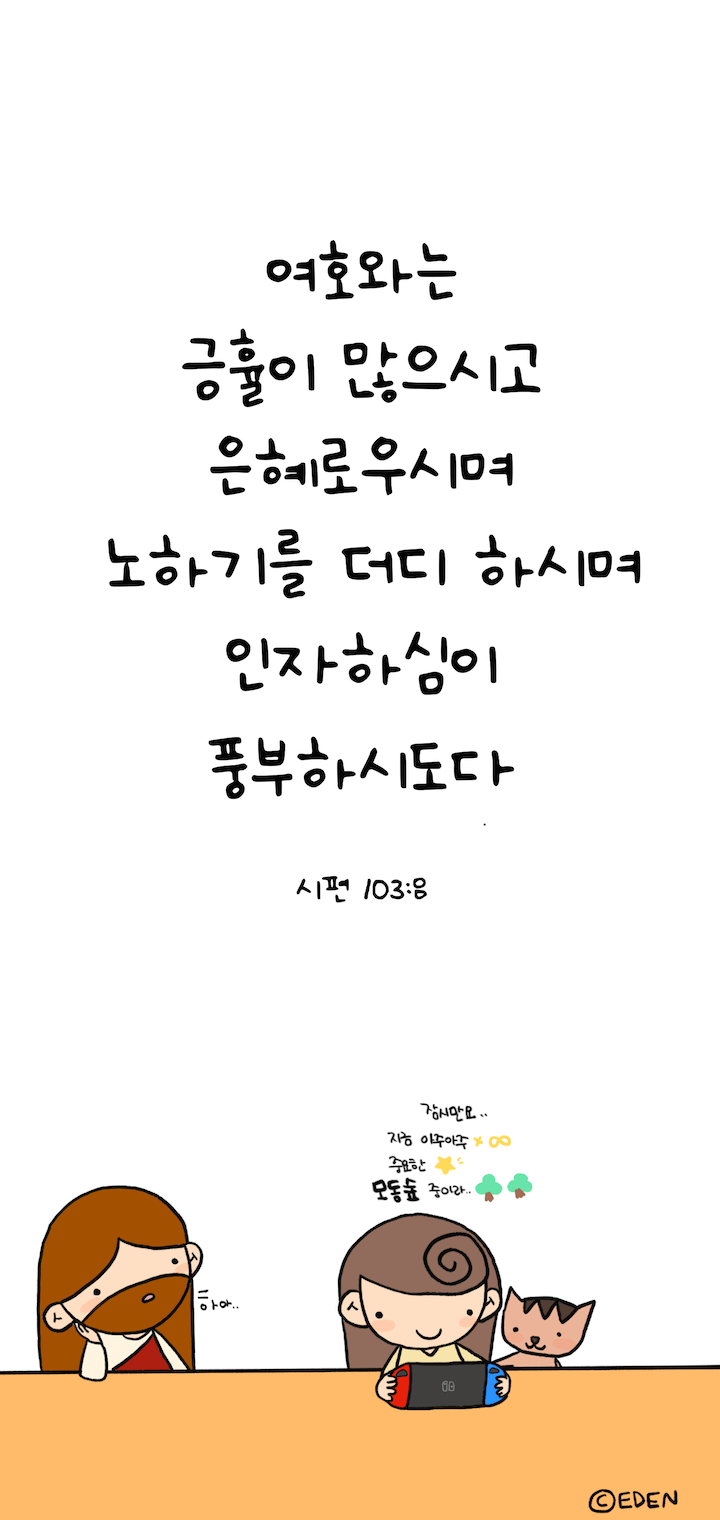 여호와는
긍휼이 많으시고
은혜로우시며
노하기를 더디 하시며
인자하심이
풍부하시도다
시편 103:8
잠시만요..
지금 아주아주 × ∞
중요한
모동숲 중이라..
하아..
©EDEN